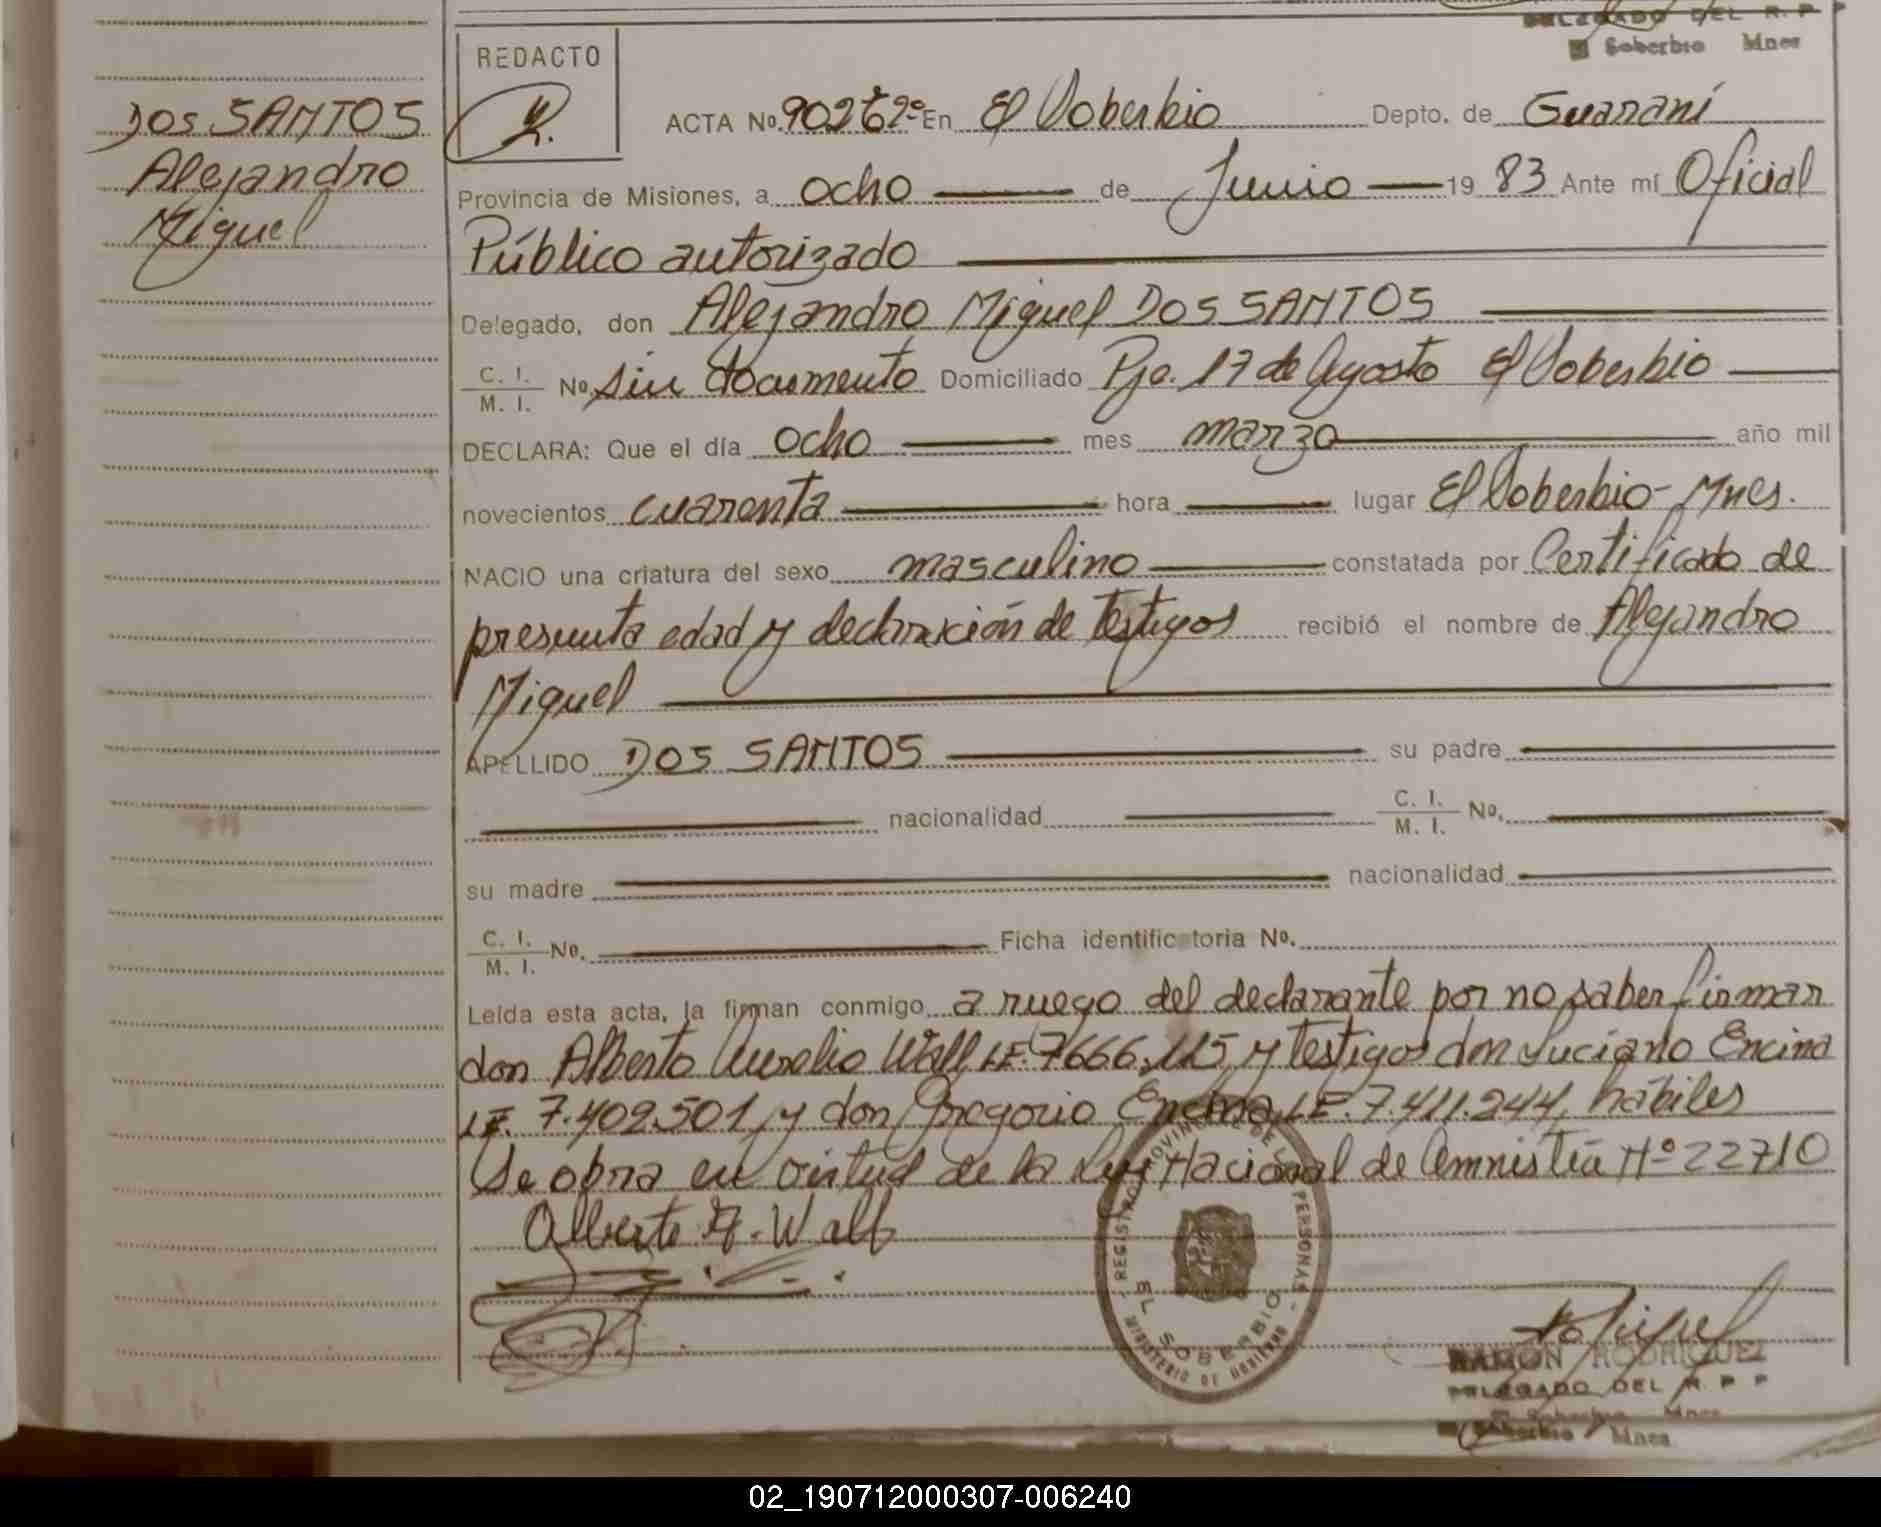 DELEGADO DEL R. P P
Soberbio Mnes
REDACTO
DOS SANTOS
Alejandro
Miguel
ACTA No. En El Soberbio Depto. de Guaraní
Provincia de Misiones, a ocho de Junio 19 83 Ante mí Oficial
Público autorizado
Delegado, don Alejandro Miguel DOS SANTOS
C. I. M. I. No. sin documento Domiciliado Pje. 17 de Agosto El Soberbio
DECLARA: Que el día ocho mes marzo año mil
novecientos cuarenta hora lugar El Soberbio - Mnes.
NACIO una criatura del sexo masculino constatada por Certificado de
presunta edad y declaración de testigos recibió el nombre de Alejandro
Miguel
APELLIDO DOS SANTOS su padre
nacionalidad C. I. M. I. No.
su madre nacionalidad
C. I. M. I. No. Ficha identificatoria No.
Leída esta acta, la firman conmigo a ruego del declarante por no saber firmar
don Alberto Aurelio Wall LE. 7666.115 y testigos don Luciano Encina
LE. 7.402.501 y don Gregorio Encina LE. 7.411.244, hábiles
Se obra en virtud de la Ley Nacional de Amnistía Nº 22710
Alberto A. Wall
REGISTRO PROVINCIAL DE PERSONAS
EL SOBERBIO
MINISTERIO DE GOBIERNO
RAMON RODRIGUEZ
DELEGADO DEL R. P P
Soberbio Mnes
02_190712000307-006240